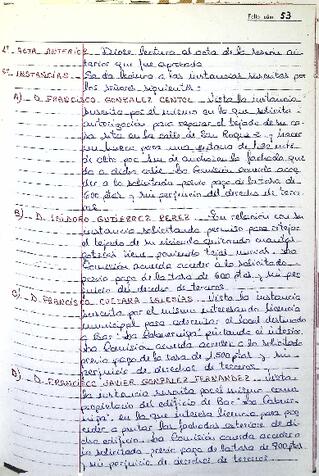 Folio núm. 53
1º ACTA ANTERIOR.- Dióse lectura al acta de la sesión an-
terior que fue aprobada
5º INSTANCIAS.- Se da lectura a las instancias suscritas por
los señores siguientes:
A).- D. FRANCISCO GONZALEZ CENTOL.- Vista la instancia
suscrita por el mismo en la que solicita
autorización para reparar el tejado de su ca-
sa sita en la calle de San Roque 2 y hacer
un hueco para una ventana de 1,20 mts
de alto por 1 m de anchura en la fachada que
da a dicha calle. La Comisión acuerda acce-
der a lo solicitado previo pago de la tasa de
600 ptas y sin perjuicio del derecho de terce-
ros.-
B).- D. ISIDORO GUTIERREZ PEREZ.- En relación con su
instancia solicitando permiso para retejar
el tejado de su vivienda quitando cuantas
goteras tiene. La
Comisión acuerda acceder a lo solicitado
previo pago de la tasa de 600 ptas y sin per-
juicio del derecho de terceros.
C).- D. FRANCISCO CUEVARA IGLESIAS. Vista la instancia
suscrita por el mismo interesando licencia
municipal para adecentar el local destinado
a Bar "La Taberniga" pintando el interior.
La Comisión acuerda acceder a lo solicitado
previo pago de la tasa de 1.500 ptas y sin
perjuicio de derechos de terceros.
D).- D. FRANCISCO JAVIER GONZALEZ FERNANDEZ.- Vista
la instancia suscrita por el mismo como
propietario del edificio de Bar "La Taber-
niga" en la que interesa licencia para pro-
ceder a pintar las fachadas exteriores de di-
cho edificio. La Comisión acuerda acceder a
lo solicitado previo pago de la tasa de 800 ptas
y sin perjuicio de derechos de terceros.-